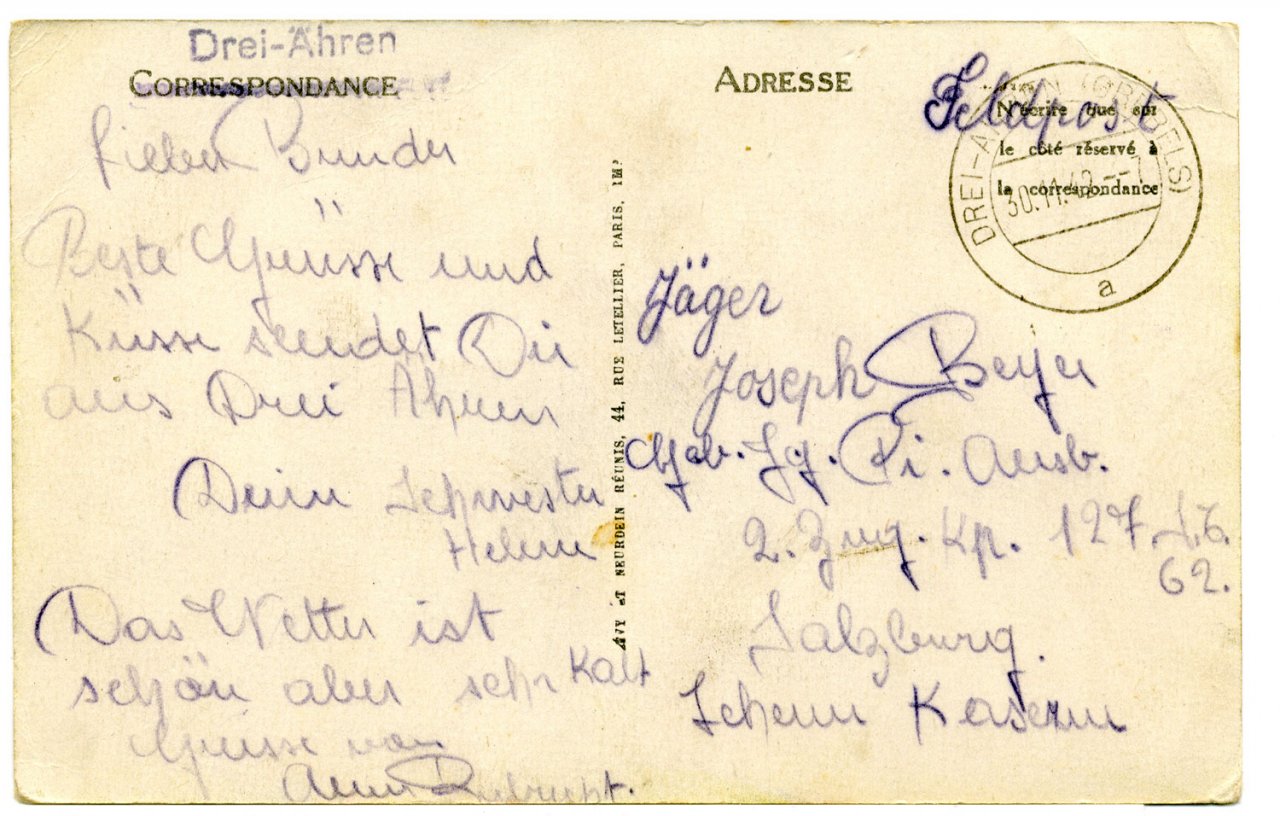 Drei-Ähren
CORRESPONDANCE
Lieber Bruder
Beste Grüsse und
Küsse sendet Dir
aus Drei Ähren
Deine Schwester
Helene
Das Wetter ist
schön aber sehr kalt
Grüsse von
LEVY ET NEURDEIN RÉUNIS, 44, RUE LETELLIER, PARIS, IMP
ADRESSE
Feldpost
N'écrire que sur
le côté réservé à
la correspondance
DREI-ÄHREN
30.11.42.--7
a
Jäger
Joseph Beyer
Geb. Jg. Pi. Ausb.
2. Zug. Kp. 127
62.
Salzburg.
Kaserne